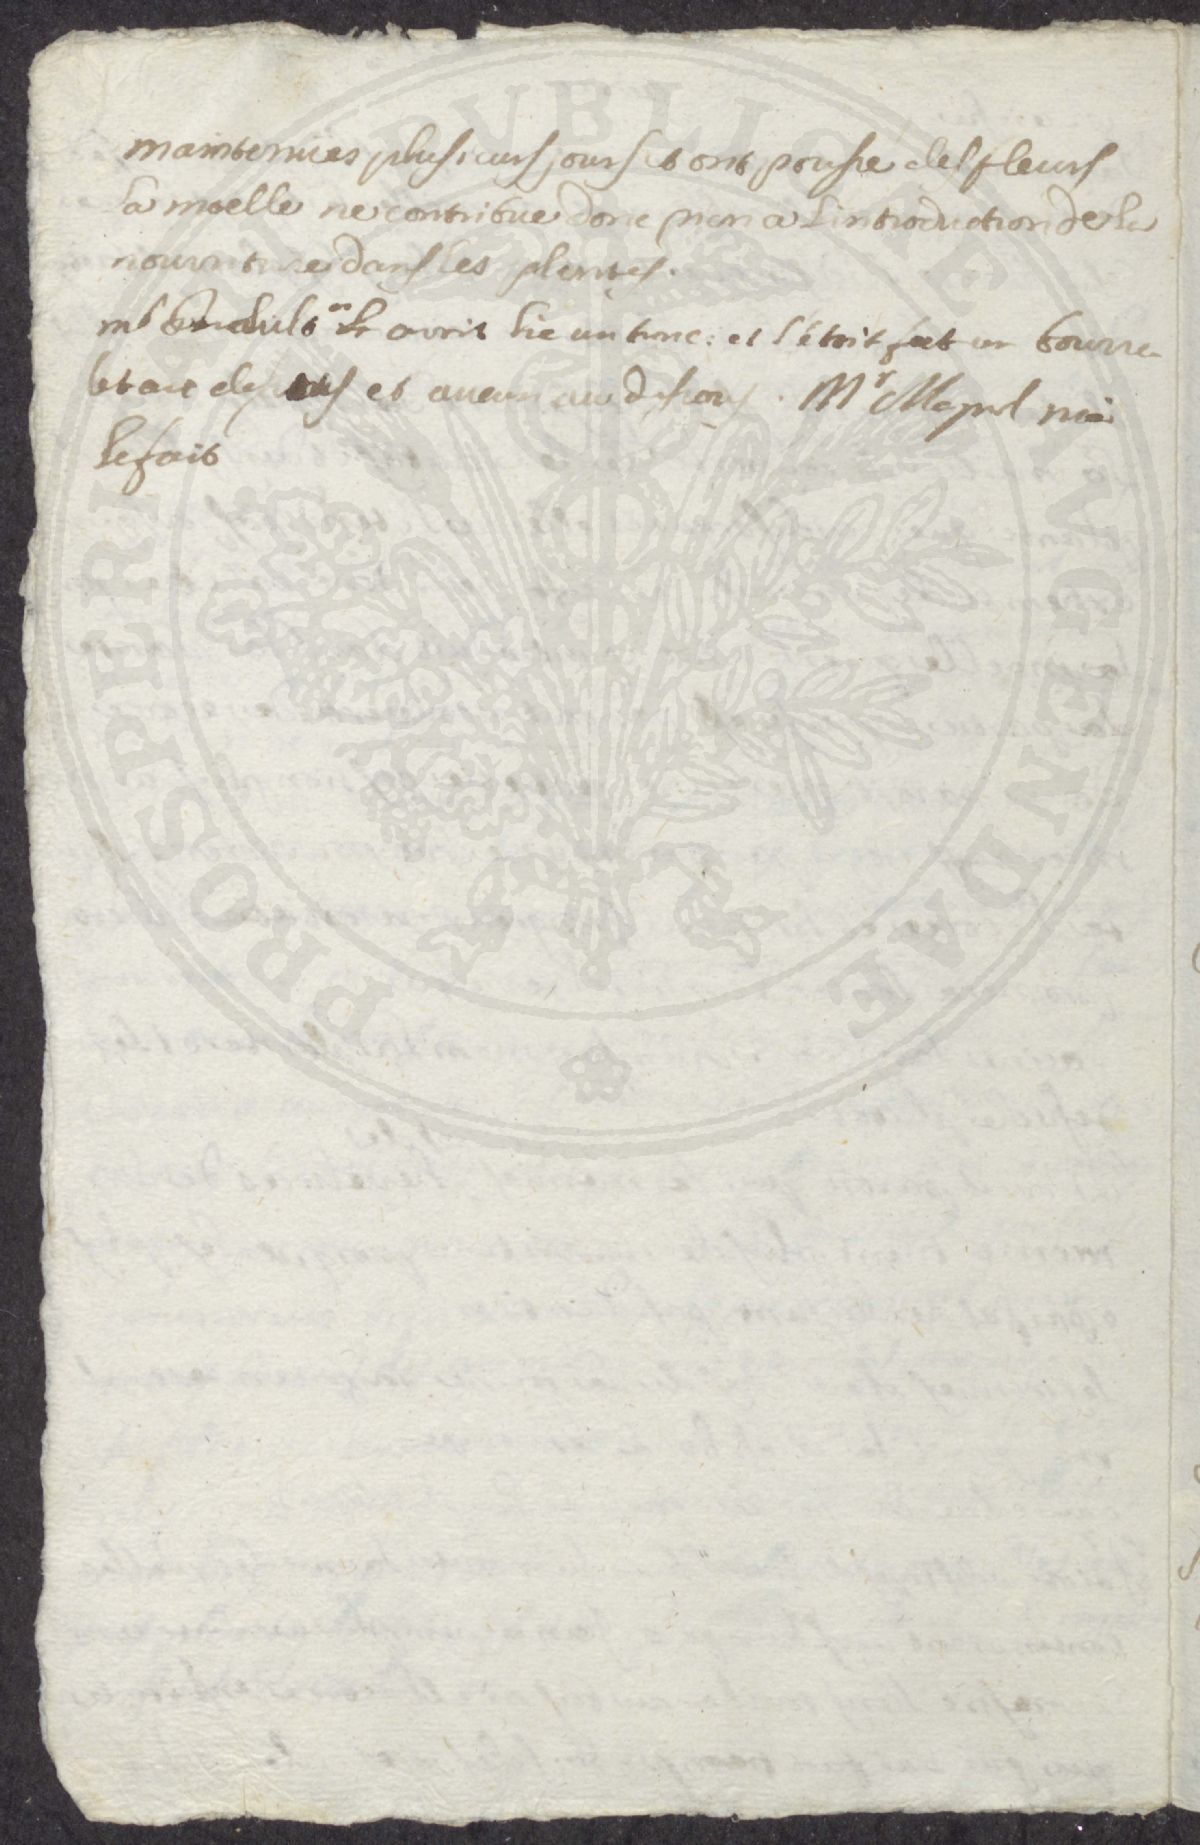 maintenues plusieurs jours et ont pousse des fleurs
La moelle ne contribue donc rien a L'introduction de la
nourriture dans les plantes.
avoit lie un tronc: et s'etoit fait un bourre
let au dessus et aucun au dessous. Mr Magnol nie
le fait
PROSPERITATI PUBLICAE AUGENDAE